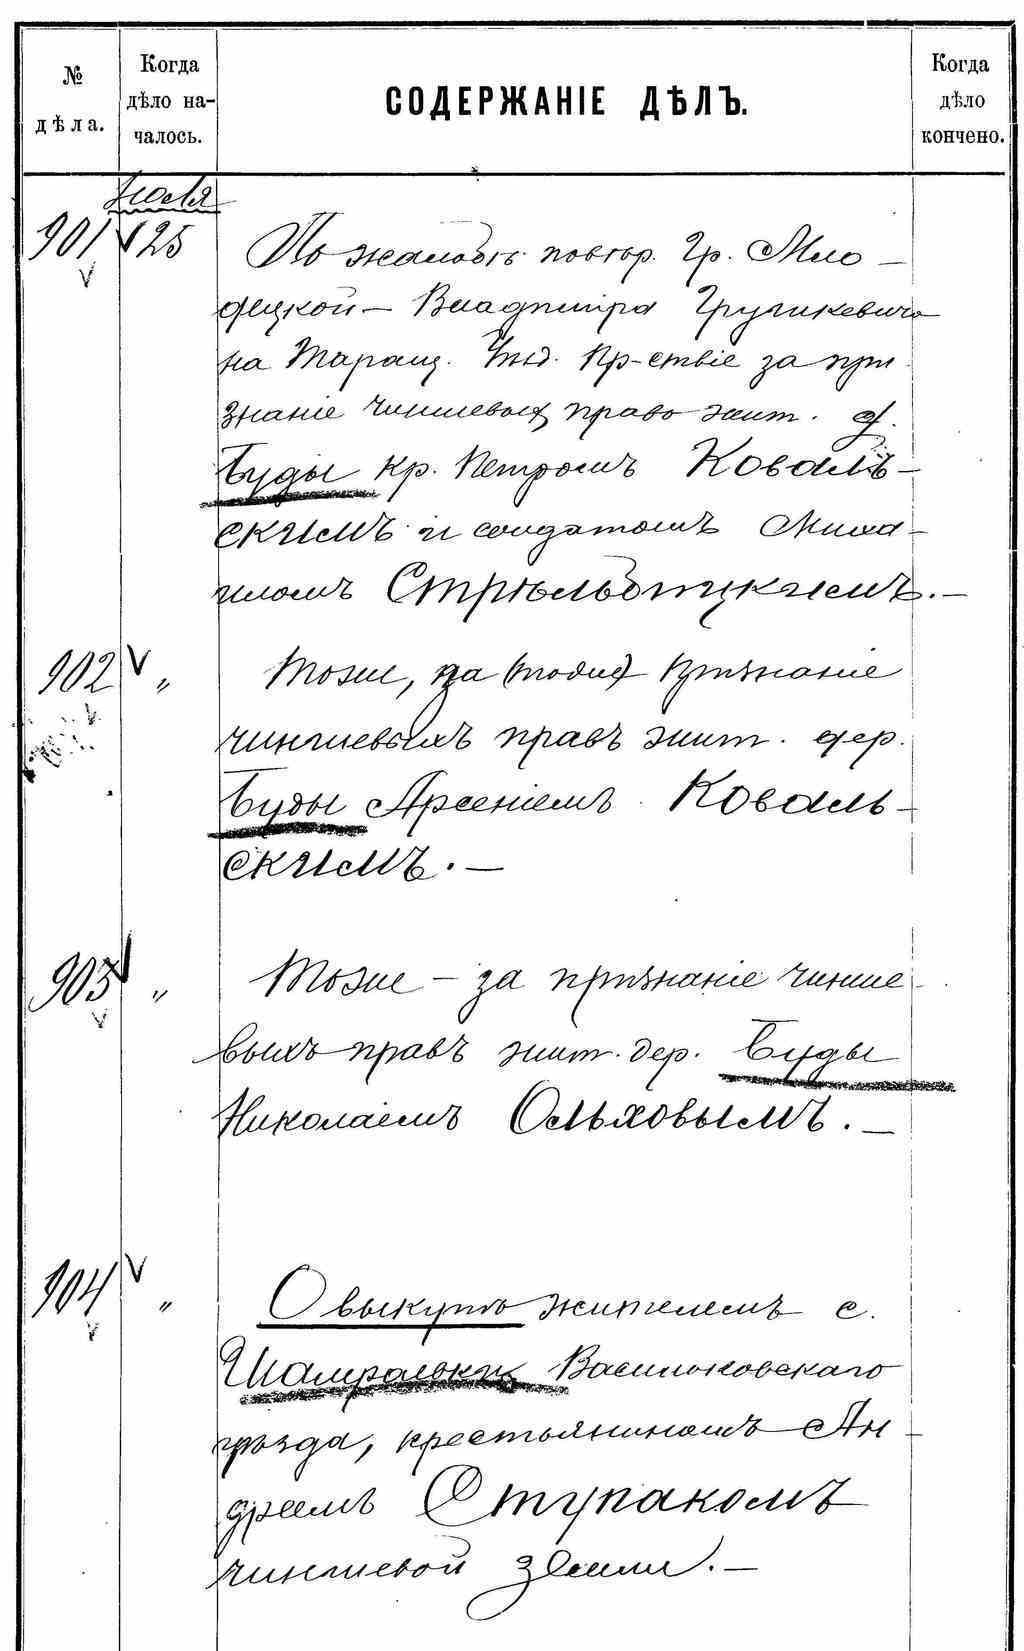 № дѣла.
Когда дѣло началось.
СОДЕРЖАНІЕ ДѢЛЪ.
Когда дѣло кончено.
Іюля
901 25 По жалобѣ повѣр. Гр. Мло-
децкой – Владиміра Грушкевича
на Таращ. Пр-ствіе за при
знаніе чиншевых право жит. д.
Буды кр. Петромъ Коваль-
скимъ и солдатомъ Миха-
иломъ Стрѣльбицкимъ. –
902 „ Тоже, за (тоже) признаніе
чиншевыхъ правъ жит. дер.
Буды Арсеніемъ Коваль-
скимъ. –
903 „ Тоже – за признаніе чинше
выхъ правъ жит. дер. Буды
Николаемъ Ольховымъ. –
904 „ О выкупѣ жителемъ с.
Шамраевки Васильковскаго
уѣзда, крестьяниномъ Ан-
дреемъ Ступакомъ
чиншевой земли. –